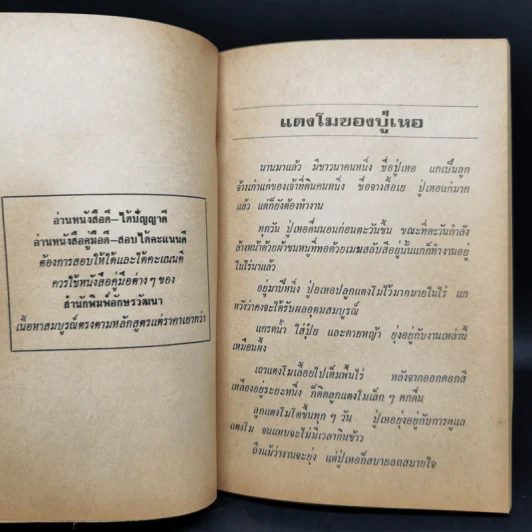 อ่านหนังสือดี-ได้ปัญญาดี
อ่านหนังสือคู่มือดี-สอบได้คะแนนดี
ต้องการสอบให้ได้และได้คะแนนดี
ควรใช้หนังสือคู่มือต่างๆ ของ
สำนักพิมพ์อักษรวัฒนา
เนื้อหาสมบูรณ์ตรงตามหลักสูตรแต่ราคาเยากว่า
แตงโมของปู่เหอ
นานมาแล้ว มีชาวนาคนหนึ่ง ชื่อปู่เหอ แกเป็นลูก
จ้างเก่าแก่ของเจ้าที่ดินคนหนึ่ง ชื่อจางสือเย ปู่เหอแก่มาก
แล้ว แต่ก็ยังต้องทำงาน
ทุกวัน ปู่เหอตื่นนอนก่อนตะวันขึ้น ขณะที่ตะวันกำลัง
ล้างหน้าด้วยผ้าขนหนูที่ทอด้วยเมฆสลับสีอยู่นั้นแกก็ทำงานอยู่
ในไร่นาแล้ว
อยู่มาปีหนึ่ง ปู่เหอปลูกแตงโมไว้มากมายในไร่ แก
หวังว่าคงจะได้รับผลอุดมสมบูรณ์
แกรดน้ำ ใส่ปุ๋ย และดายหญ้า ยุ่งอยู่กับงานเหล่านี้
เหมือนผึ้ง
เถาแตงโมเลื้อยไปเต็มพื้นไร่ หลังจากออกดอกสี
เหลืองอยู่ระยะหนึ่ง ก็ติดลูกแตงโมเล็ก ๆ ดกดื่น
ลูกแตงโมโตขึ้นทุก ๆ วัน ปู่เหอยุ่งอยู่กับการดูแล
แตงโม จนแทบจะไม่มีเวลากินข้าว
ถึงแม้ว่างานจะยุ่ง แต่ปู่เหอก็สบายอกสบายใจ